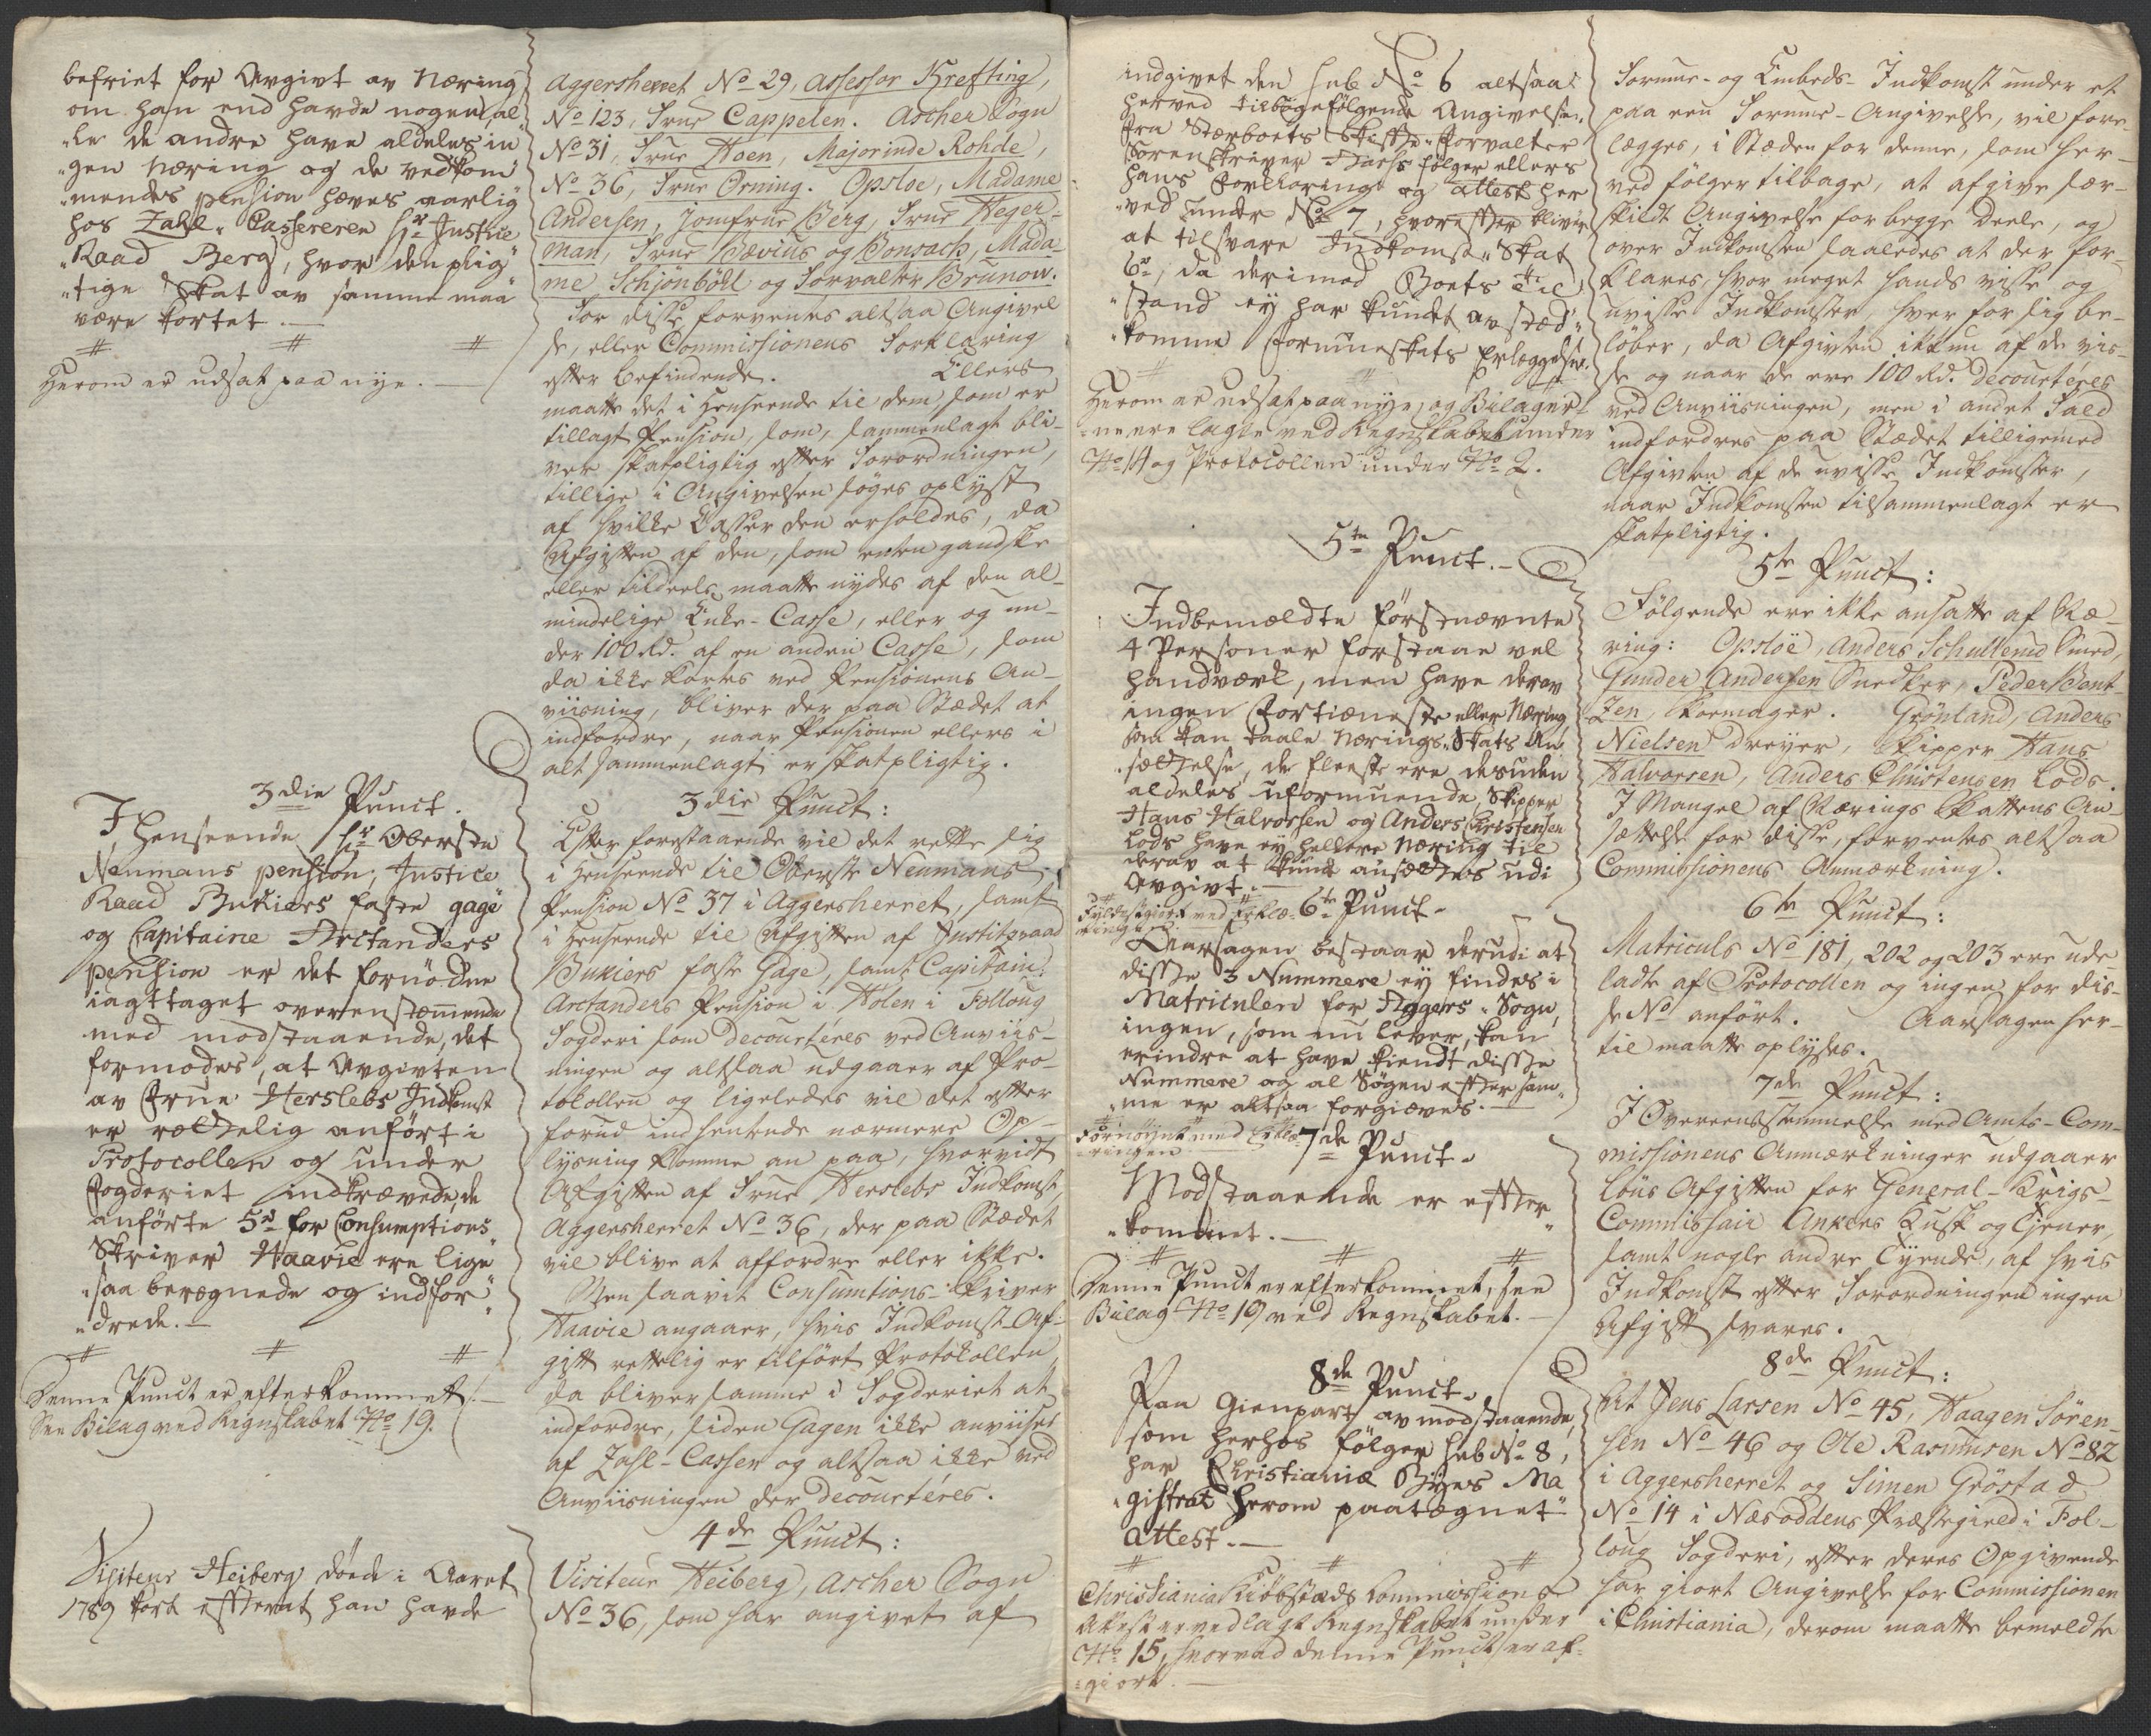 befriet for Avgivt av Næring
om han end havde nogen, al¬
„le de andre have aldeles in
„gen Næring og de vedkom¬
„mendes pension hæves aarlig
hos Zahl-Cassereren Hr Justice
„Raad Berg, hvor den plig„
„tige Skat av samme maa
være kortet.—
# # #
Herom er udsat paa nye.—
3die Punct.
I Henseende Hr Obersten
Neumans pension, Justice
Raad Bukiers faste gage
og Capitaine Arctanders
pension er det fornödne
iagttaget overenstæmmende
med modstaaende, det
formodes, at Avgivten
av Frue Herslebs Indkomst
er rættelig anfört i
Protocollen og under
Fogderiet indkrævede, de
anförte 5rd for Consumptions„
Skriver Haavie ere lige
„saa beregnede og indfor„
„drede.—
# # #
Denne Punct er efterkommet.—
See Bilag ved Regnskabet No 19.
Visiteur Heiberg döde i Aaret
1789 kort efterat han havde
Aggersherret No 29, Assessor Krefting,
No 123, Frue Cappelen. Ascher Sogn
No 31, Frue Hoen, Majorinde Rohde,
No 36, Frue Örning. Opsloe, Madame
Andersen, Jomfrue Berg, Frue Heger¬
man, Frue Bævius og Consach, Mada¬
me Schjönböhl og Forvalter Brunow.
For disse forventes altsaa Angivel¬
se, eller Commissionens Forklaring
efter befindende. Ellers
maatte det i Henseende til dem, som er
tillagt Pension, som, sammenlagt bli¬
ver skatpligtig efter Forordningen,
tillige i Angivelsen söges oplyst
af hvilke Casser den erholdes, da
Afgiften af den, som enten gandske
eller tildeels maatte nydes af den al¬
mindelige Enke-Casse, eller og un¬
der 100 Rd. af en anden Casse, som
da ikke kortes ved Pensionens An¬
viisning, bliver der paa Stædet at
indfordre, naar Pensionen ellers i
alt sammenlagt er skatpligtig.
3die Punct:
Efter forestaaende vil det rette sig
i Henseende til Oberste Neumans
Pension No 37 i Aggersherret, samt
i Henseende til Afgiften af Justitzraad
Bukiers faste Gage, samt Capitain
Arctanders Pension i Hölen i Folloug
Fogderi som decourteres ved Anviis¬
ningen og altsaa udgaaer af Pro¬
tokollen og ligeledes vil det efter
forud indhentende nærmere Op¬
lysning komme an paa, hvorvidt
Afgiften af Frue Herslebs Indkomst,
Aggersherret No 36, der paa Stædet
vil blive at affordre eller ikke.
Men saavit Consumtions-Skriver
Haavie angaaer, hvis Indkomst-Af¬
gift rettelig er tilfört Protokollen
da bliver samme i Fogderiet at
indfordre, siden Gagen ikke anviises
af Zahl-Cassen og altsaa ikke ved
Anviisningen der decourteres.
4de Punct:
Visiteur Heiberg, Ascher Sogn
No 36, som har angivet af
indgivet den sub No 6 altsaa
herved tilbagefölgende Angivelse.
fra Stærboets Skifte-Forvalter
Sorenskriver følger ellers
hans Forklaring og attest her
„ved under No 7, hvorefter bliver
at tilsvare Indkomst-Skat
6rd, da derimod Boets Til„
„stand ey har kundet avstæd„
„komme Formueskats Erlæggelse.
# # #
Herom er udsat paa nye, og Bilager„
„ne ere lagte ved Regnskabet under
No 14 og Protocollen under No 2.
5te Punct.—
Indbemældte förstnævnte
4 Personer forstaae vel
handværk, men have derav
ingen Fortieneste eller Næring
som kan taale Nærings-Skats An„
„sættelse, de fleeste ere desuden
aldeles uformuende, Skipper
Hans Halvorsen og Anders Christensen
Lods have ey hellere Næring til
derav at kunde ansættes udi
Avgivt.—
# #
Fyldestgiort ved Erklæ„
„ringen.
6te Punct.
Aarsagen bestaar derudi at
disse 3 Nummere ey findes i
Matriculen for Aggers-Sogn,
ingen, som nu lever, kan
erindre at have kiendt disse
Nummere og al Sögen efter sam„
„me er altsaa forgiæves.—
#
Fornøynet med Erklæ„
„ringen
7de Punct.
Modstaaende er efter„
„kommet.—
# # #
Denne Punct er efterkommet, see
Bilag No 19 ved Regnskabet.—
8de Punct.
Paa Gienpart av modstaaende,
som herhos fölger sub No 8,
har Christianiæ Byes Ma
„gistrat herom paategnet
Attest.—
# # #
Christiania Kiöbstæds Commissions
Attest er vedlagt Regnskabet under
No 15, hvorved denne Punct er af„
„giort.—
Formue- og Embeds-Indkomst under et
paa een Formue-Angivelse, vil fore¬
lægges, i Stæden for denne, som her¬
ved fölger tilbage, at afgive sær¬
skildt Angivelse for begge Deele, og
over Indkomsten saaledes at der for¬
klares, hvor meget hands visse og
uvisse Indkomster, hver for sig be¬
löber, da Afgivten ikkun af de vis¬
se og naar de ere 100 Rd. decourteres
ved Anviisningen, men i andet Fald
indfordres paa Stædet tilligemed
Afgivten af de uvisse Indkomster,
naar Indkomsten tilsammenlagt er
skatpligtig.
5te Punct:
Fölgende ere ikke ansatte af Næ¬
ring: Opslöe, Anders Schullerud Smed,
Gunder Andersen Snedker, Peder Bent¬
zen, Skoemager. Grönland, Anders
Nielsen Dreyer, Skipper Hans
Halvorsen, Anders Christensen Lods.
I Mangel af Nærings Skattens An¬
sættelse for disse, forventes altsaa
Commissionens Anmærkning.
6te Punct:
Matriculs No 181, 202 og 203 ere ude¬
ladte af Protocollen og ingen for dis¬
se No anfört. Aarsagen her¬
til maatte oplyses.
7de Punct:
I Overeensstemmelse med Amts-Com¬
missionens Anmærkninger udgaaer
Löns Afgiften for General-Krigs-
Commissair Ankers Kusk og Tjener,
samt nogle andre Tyende, af hvis
Indkomst efter Forordningen ingen
Afgift svares.
8de Punct:
At Jens Larsen No 45, Haagen Sören¬
sen No 46 og Ole Rasmusen No 82
i Aggersherret og Simen Gröstad
No 14 i Næsoddens Præstegield i Fol¬
loug Fogderi, efter deres Opgivende
har giort Angivelse for Commissionen
i Christiania, derom maatte bemeldte